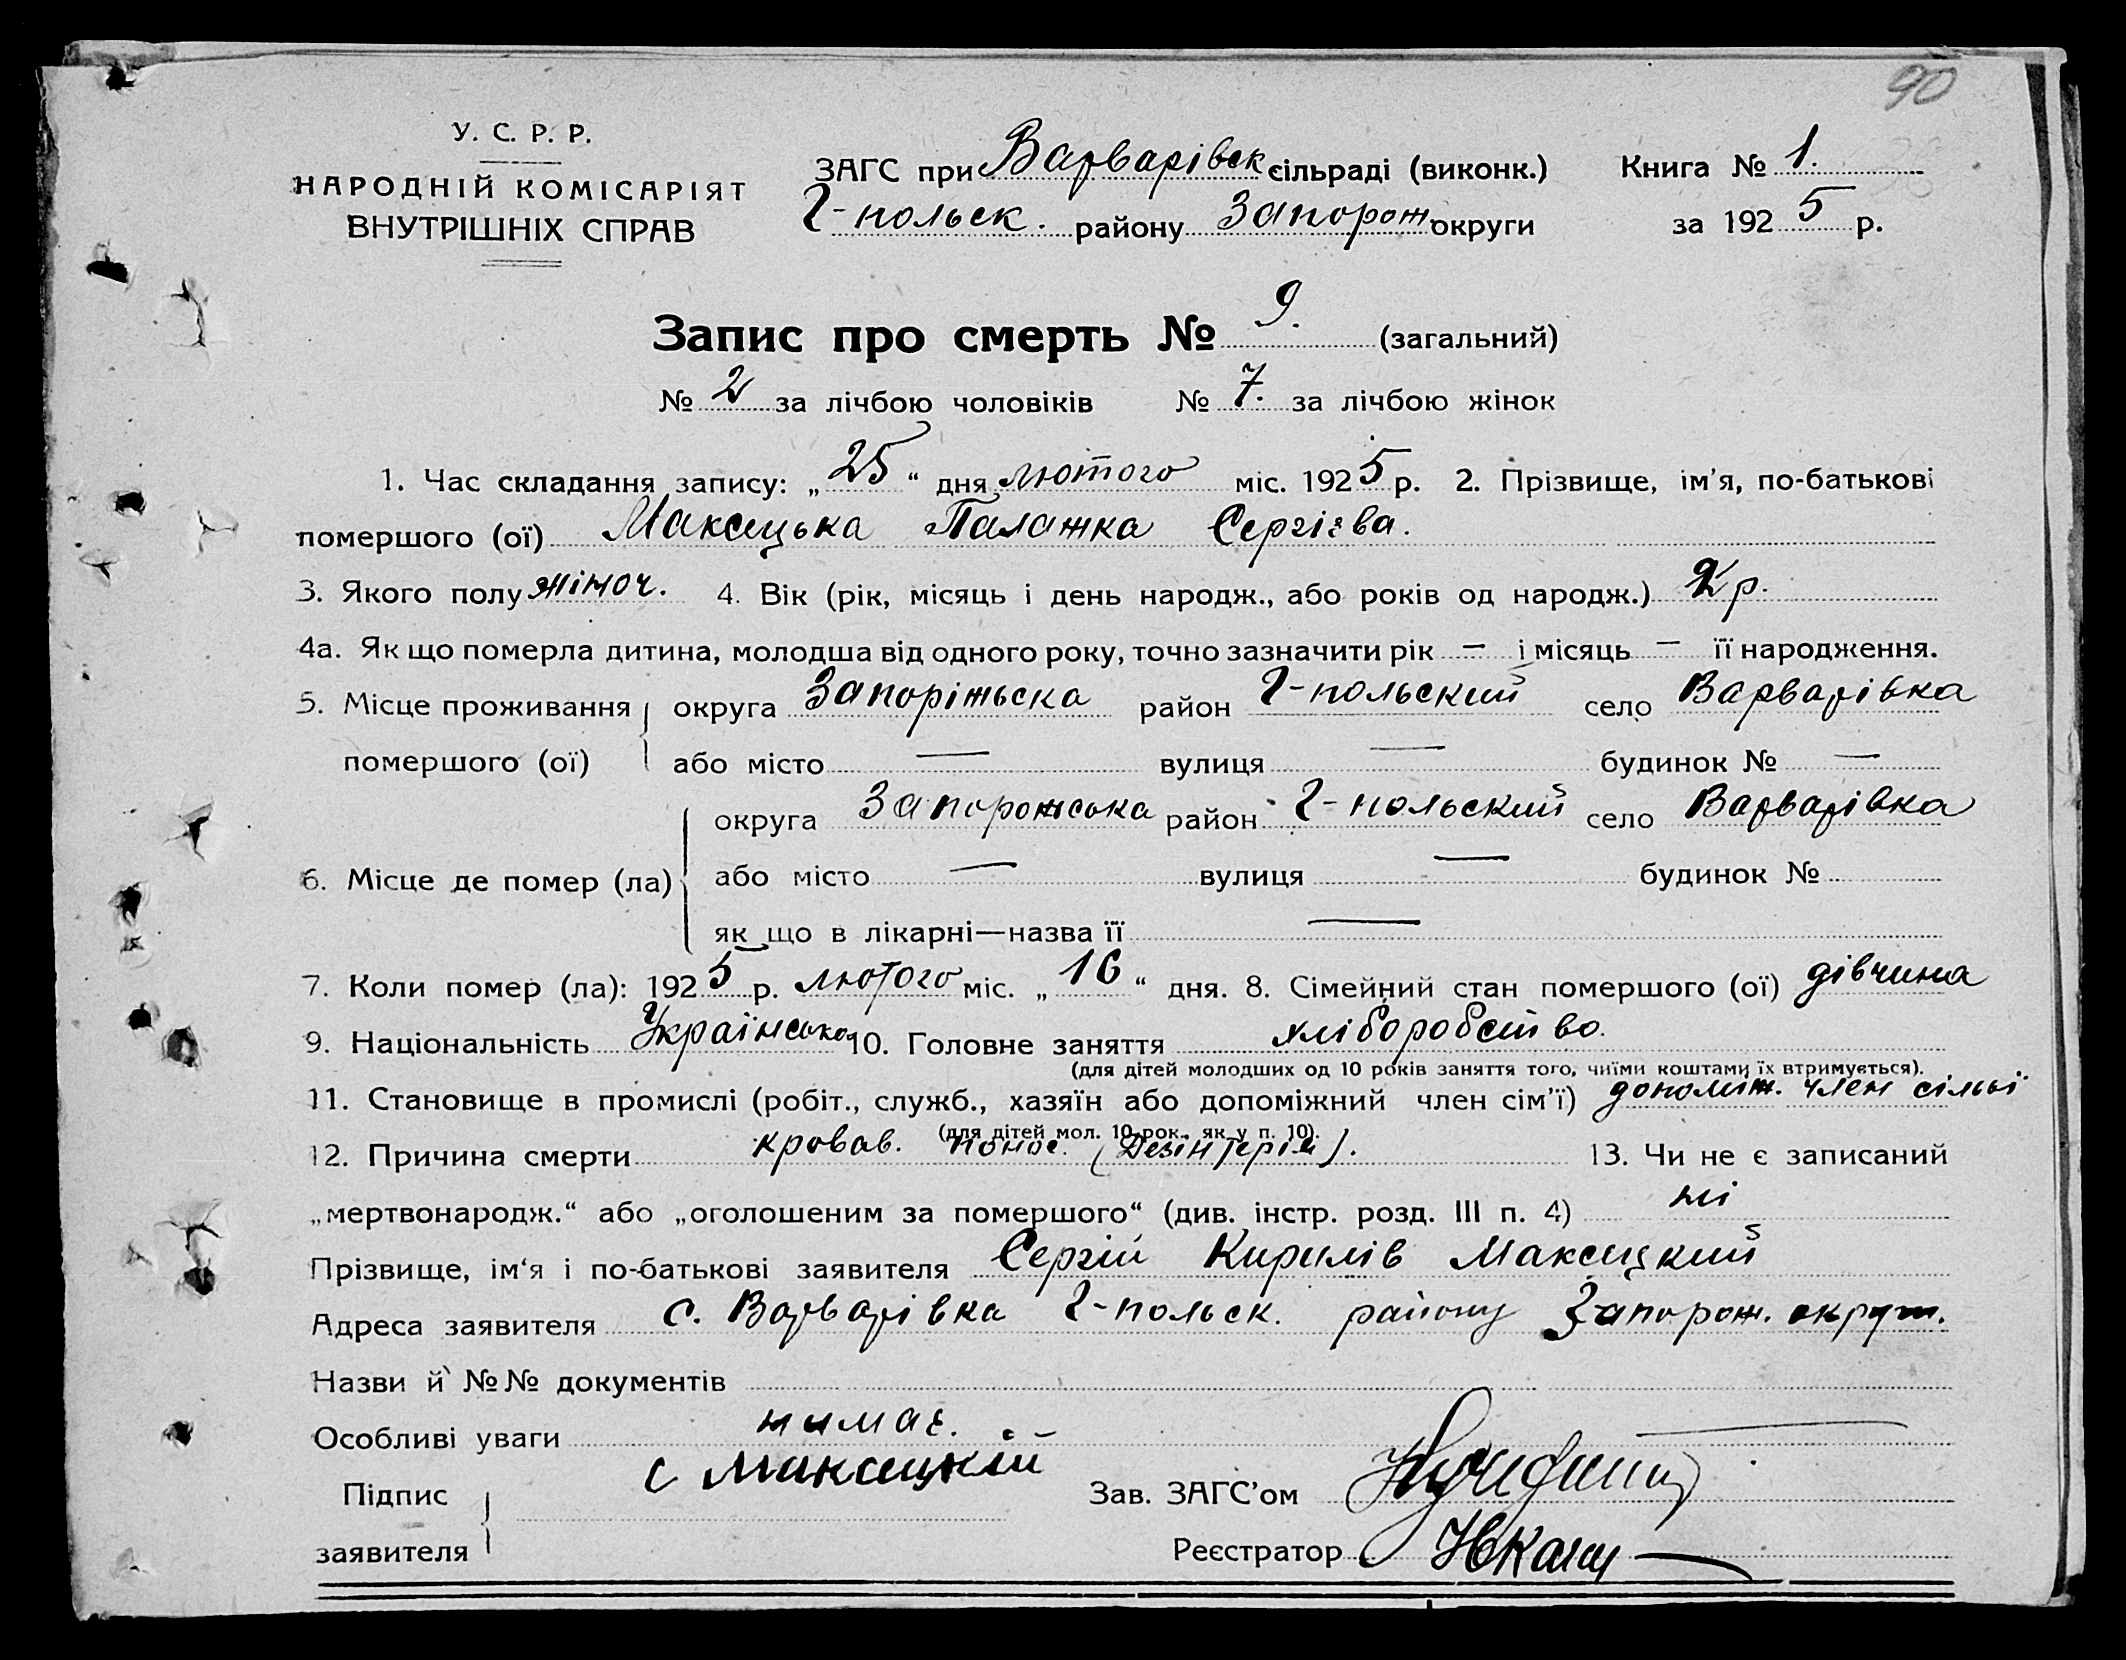 90
У. С. Р. Р.
НАРОДНІЙ КОМІСАРІЯТ
ВНУТРІШНІХ СПРАВ
ЗАГС при Варварівск сільраді (виконк.) Книга № 1.
Г-польск. району Запорож округи за 1925 р.
Запис про смерть № 9. (загальний)
№ 2 за лічбою чоловіків № 7. за лічбою жінок
1. Час складання запису: „25“ дня лютого міс. 1925 р. 2. Прізвище, ім’я, по-батькові
помершого (ої) Максицька Палажка Сергієва.
3. Якого полу жіноч. 4. Вік (рік, місяць і день народж., або років од народж.) 2 р.
4а. Як що померла дитина, молодша від одного року, точно зазначити рік — і місяць — її народження.
5. Місце проживання округа Запоріжьска район Г-польский село Варварівка
помершого (ої) або місто — вулиця — будинок № —
округа Запорожська район Г-польский село Варварівка
6. Місце де помер (ла) або місто — вулиця — будинок №
як що в лікарні—назва її —
7. Коли помер (ла): 1925 р. лютого міс. „16“ дня. 8. Сімейний стан помершого (ої) дівчина
9. Національність Українська 10. Головне заняття хліборобство.
(для дітей молодших од 10 років заняття того, чиїми коштами їх втримується).
11. Становище в промислі (робіт., служб., хазяїн або допоміжний член сім’ї) допоміж. член сільї
(для дітей мол. 10 рок., як у п. 10).
12. Причина смерти кровав. понос. (Дезінтерія). 13. Чи не є записаний
„мертвонародж.“ або „оголошеним за помершого“ (див. інстр. розд. III п. 4) ні
Прізвище, ім‘я і по-батькові заявителя Сергій Кирилів Максицкий
Адреса заявителя с. Варварівка Г-польск. району Запорож. округ.
Назви й №№ документів
Особливі уваги нимає.
Підпис с Максицкій Зав. ЗАГС’ом
заявителя Реєстратор